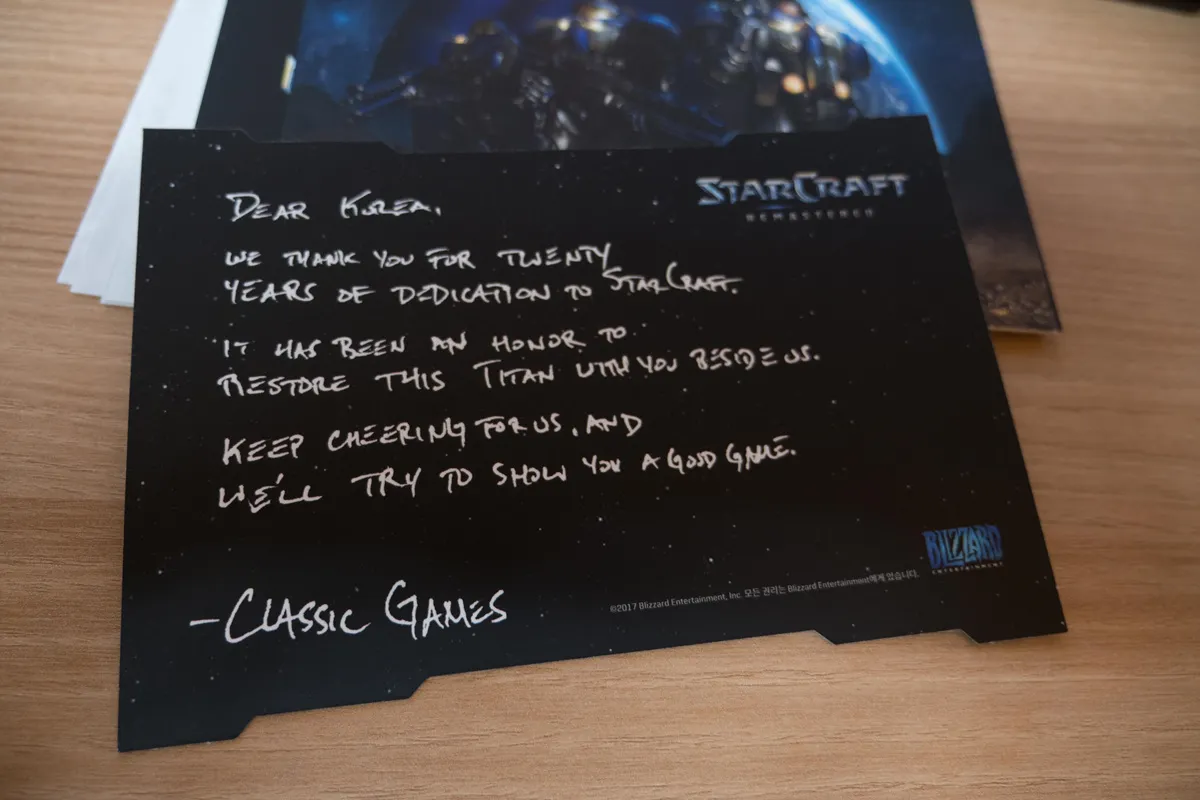 DEAR KOREA,
STARCRAFT
REMASTERED
WE THANK YOU FOR TWENTY
YEARS OF DEDICATION TO STARCRAFT.
IT HAS BEEN AN HONOR TO
RESTORE THIS TITAN WITH YOU BESIDE US.
KEEP CHEERING FOR US, AND
WE'LL TRY TO SHOW YOU A GOOD GAME.
- CLASSIC GAMES
BLIZZARD
ENTERTAINMENT
©2017 Blizzard Entertainment, Inc. 모든 권리는 Blizzard Entertainment에게 있습니다.